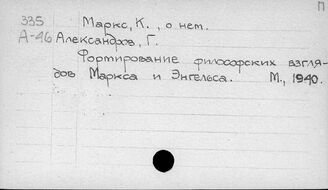 П
335 Маркс, К. , о нем.
А-46 Александров, Г.
Формирование философских взгля-
дов Маркса и Энгельса. М., 1940.